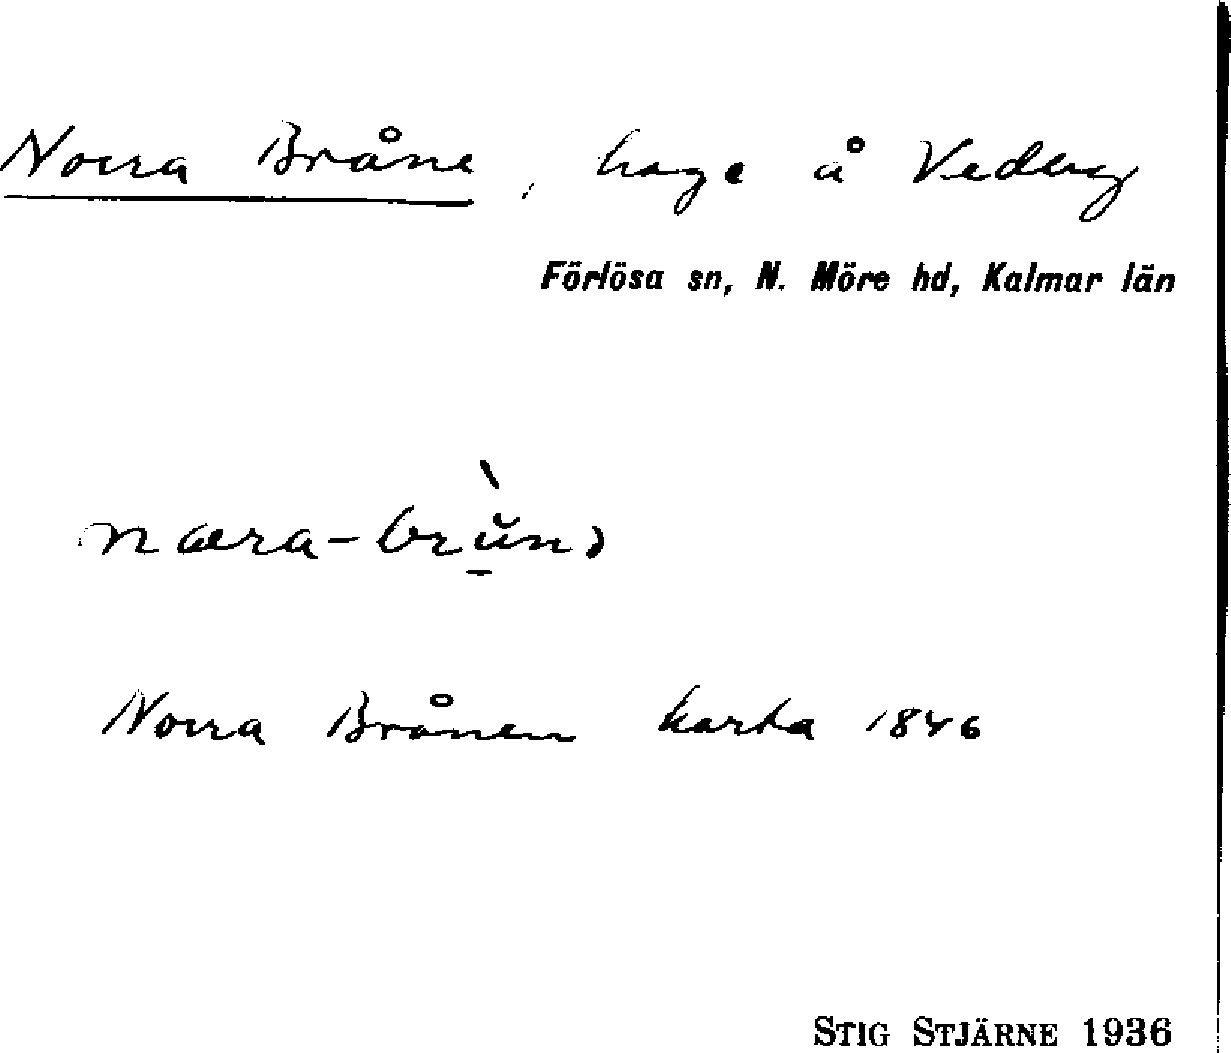 Norra Bråne, hage å Vederg
Förlösa sn, N. Möre hd, Kalmar län
Norra Brånen karta 1846
STIG STJÄRNE 1936